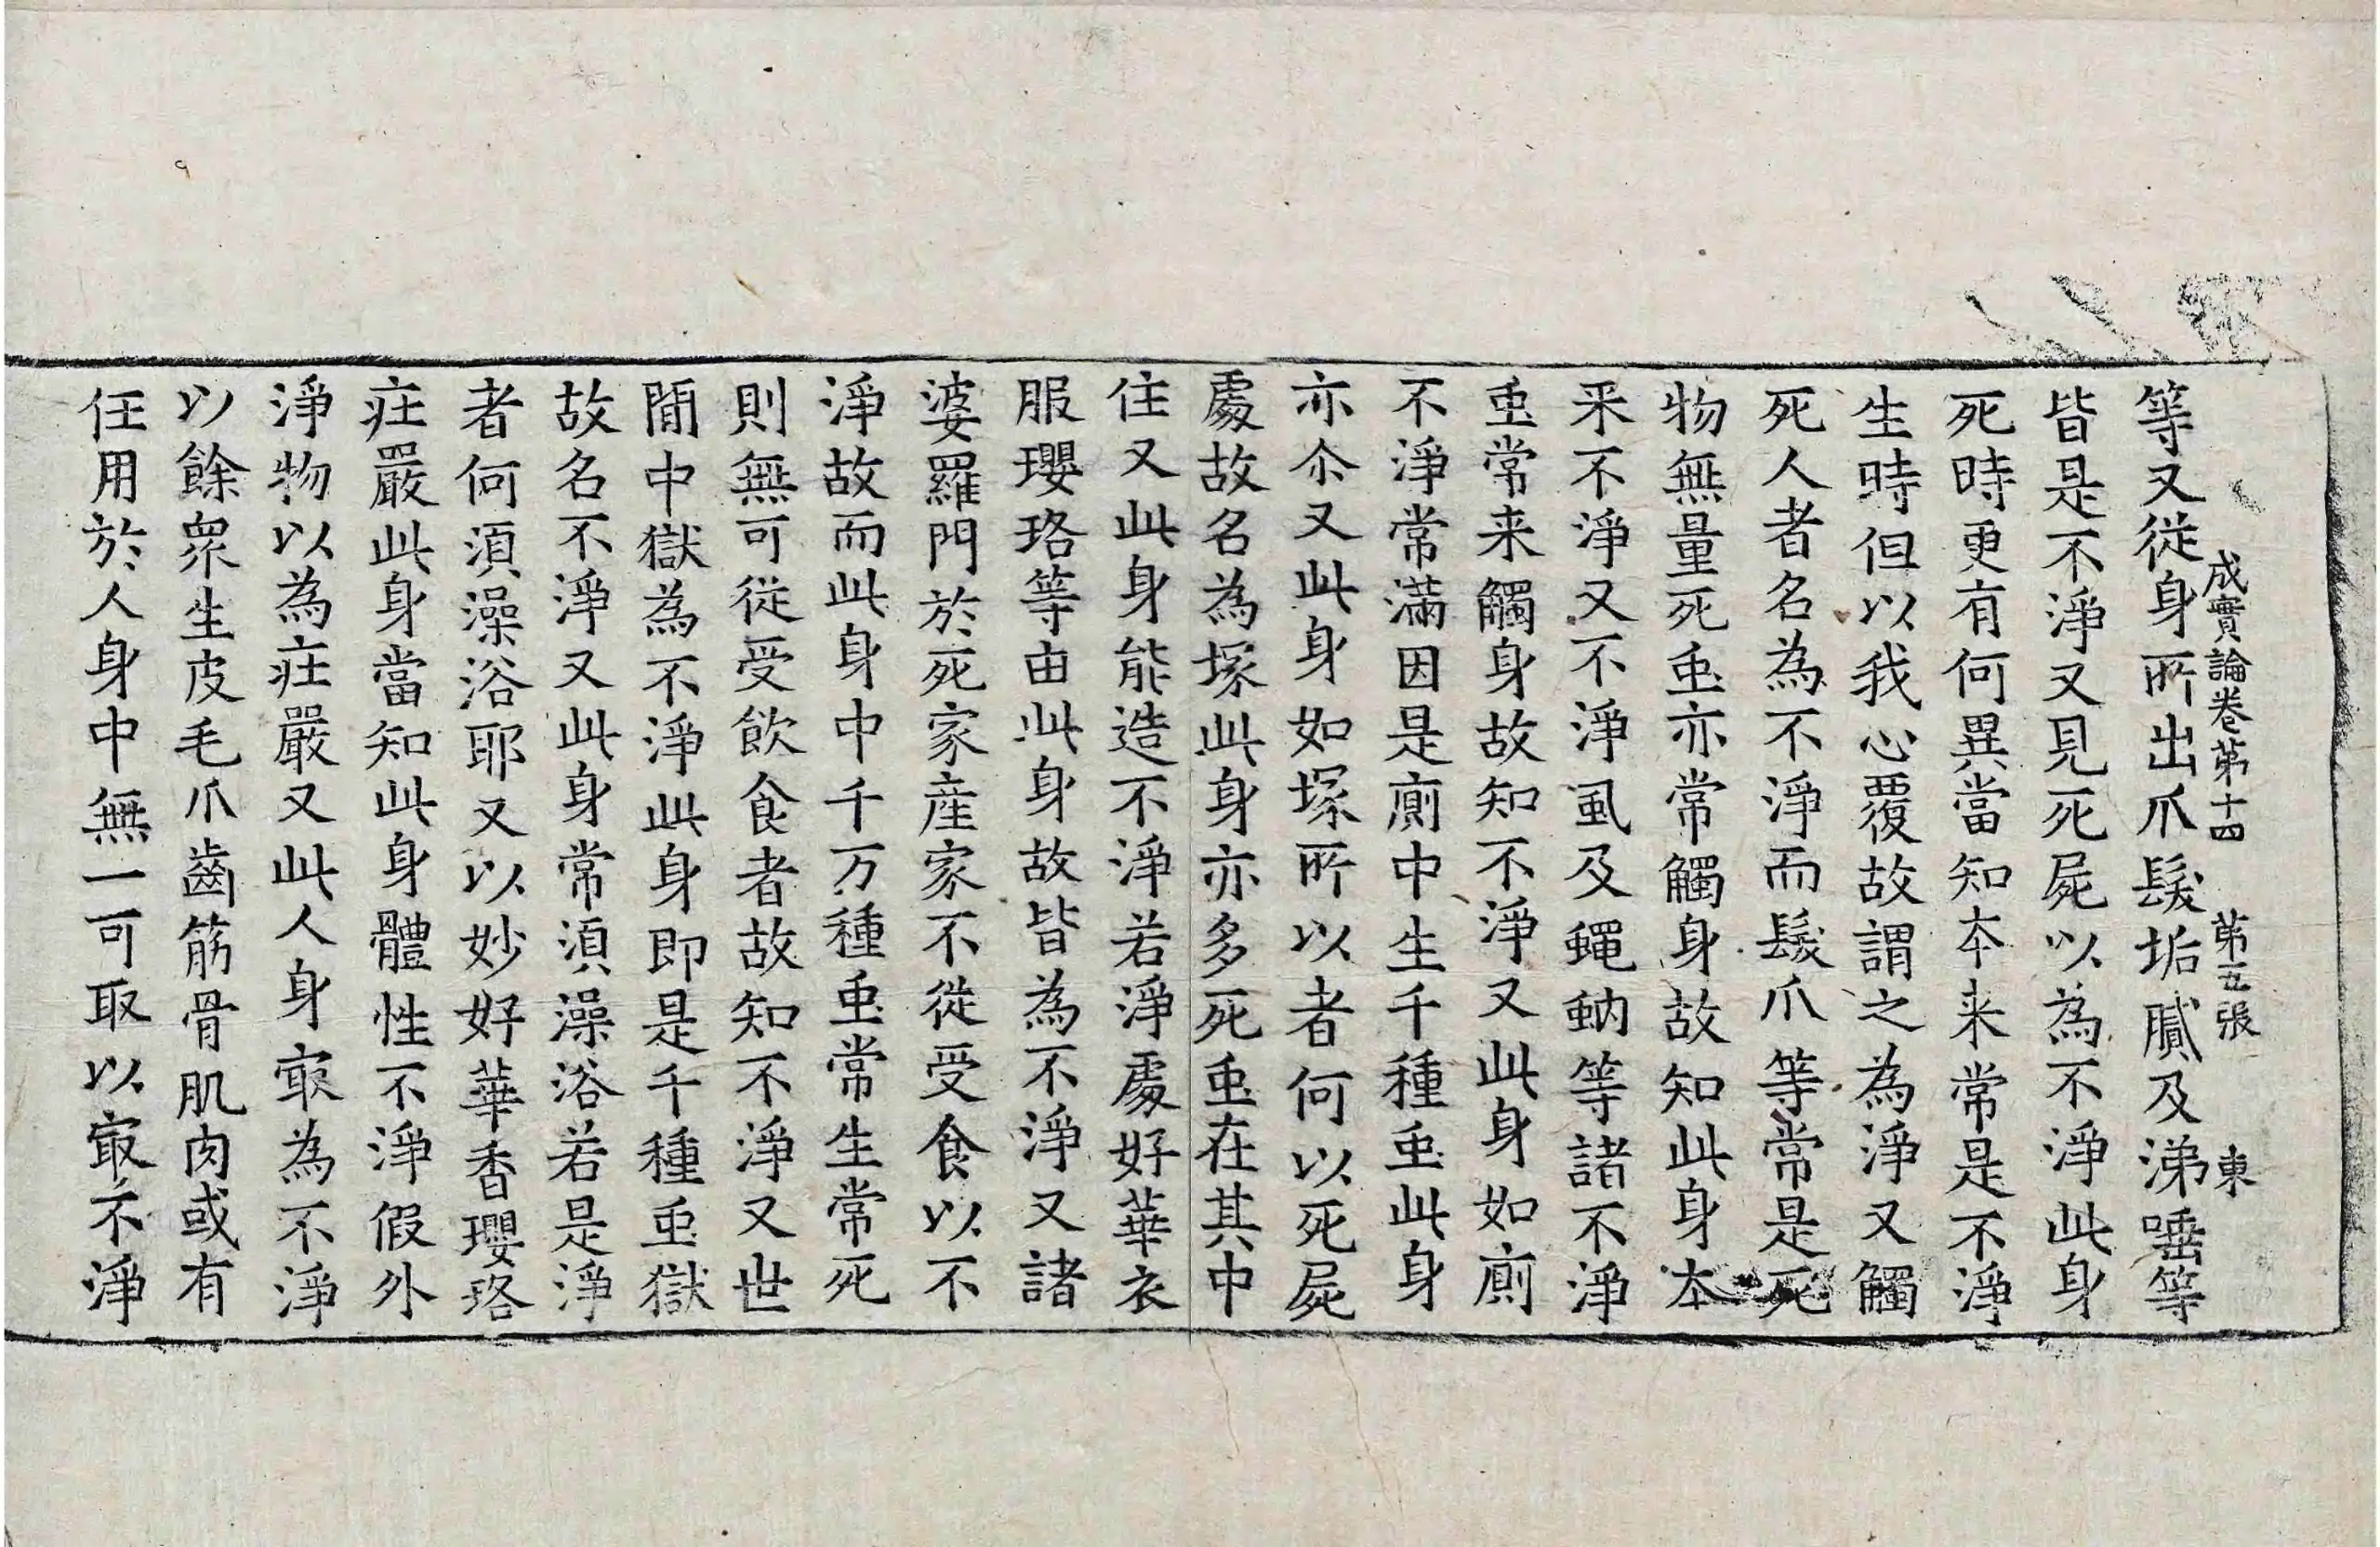 成實論卷第十四　第五張　東
等又從身所出爪髮垢膩及涕唾等
皆是不淨又見死屍以為不淨此身
死時更有何異當知本来常是不淨
生時但以我心覆故謂之為淨又觸
死人者名為不淨而髮爪等常是死
物無量死䖝亦常觸身故知此身本
来不淨又不淨虱及蠅蚋等諸不淨
䖝常来觸身故知不淨又此身如廁
不淨常滿因是廁中生千種䖝此身
亦尒又此身如塚所以者何以死屍
處故名為塚此身亦多死䖝在其中
住又此身能造不淨若淨處好華衣
服瓔珞等由此身故皆為不淨又諸
婆羅門於死家産家不從受食以不
淨故而此身中千万種䖝常生常死
則無可從受飲食者故知不淨又世
閒中獄為不淨此身即是千種䖝獄
故名不淨又此身常湏澡浴若是淨
者何湏澡浴耶又以妙好華香瓔珞
㽵嚴此身當知此身體性不淨假外
淨物以為㽵嚴又此人身㝡為不淨
以餘衆生皮毛爪齒筋骨肌肉或有
任用於人身中無一可取以㝡不淨